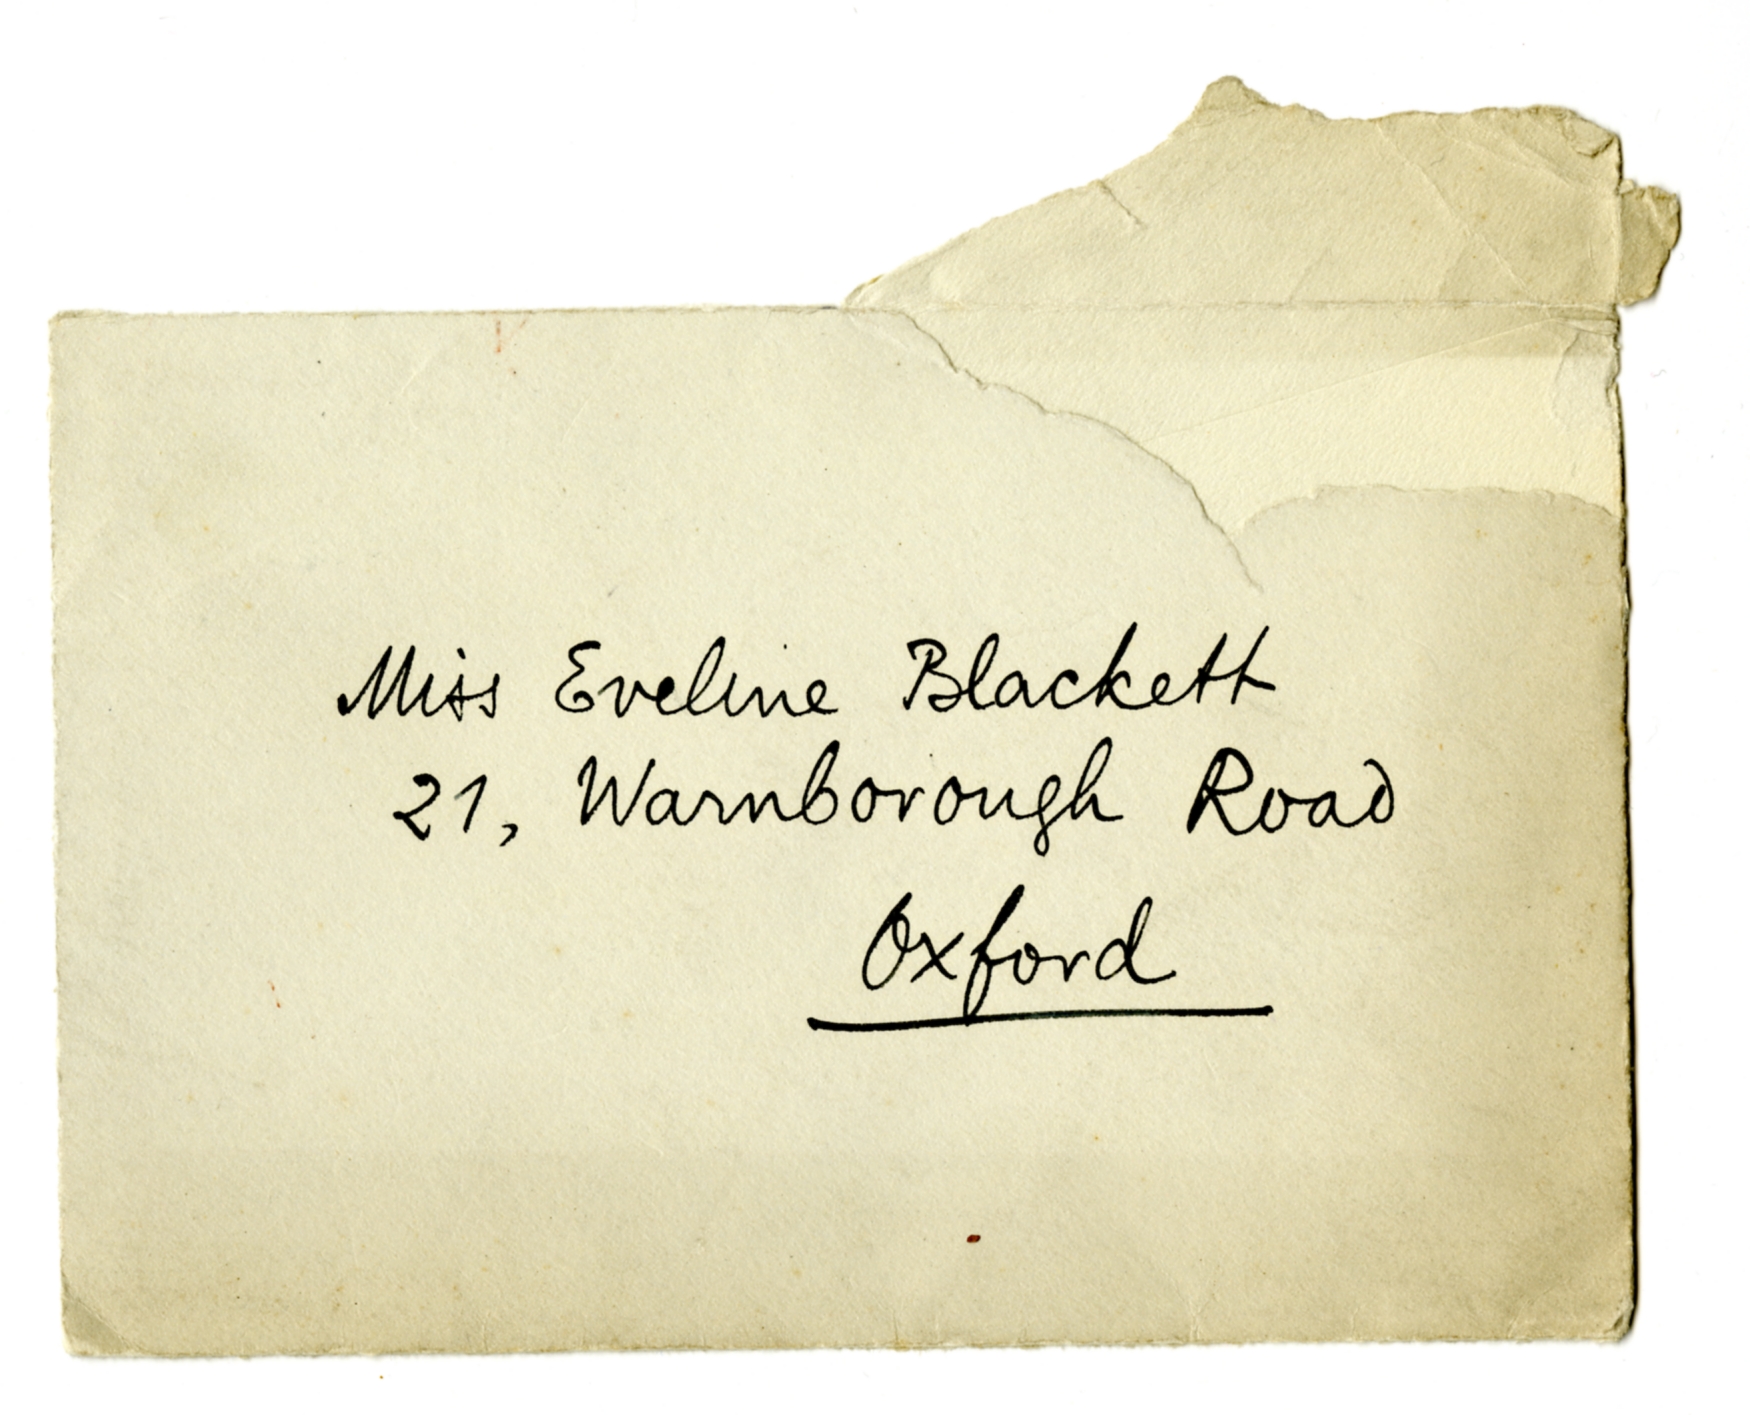 Miss Eveline Blackett
21, Warnborough Road
Oxford